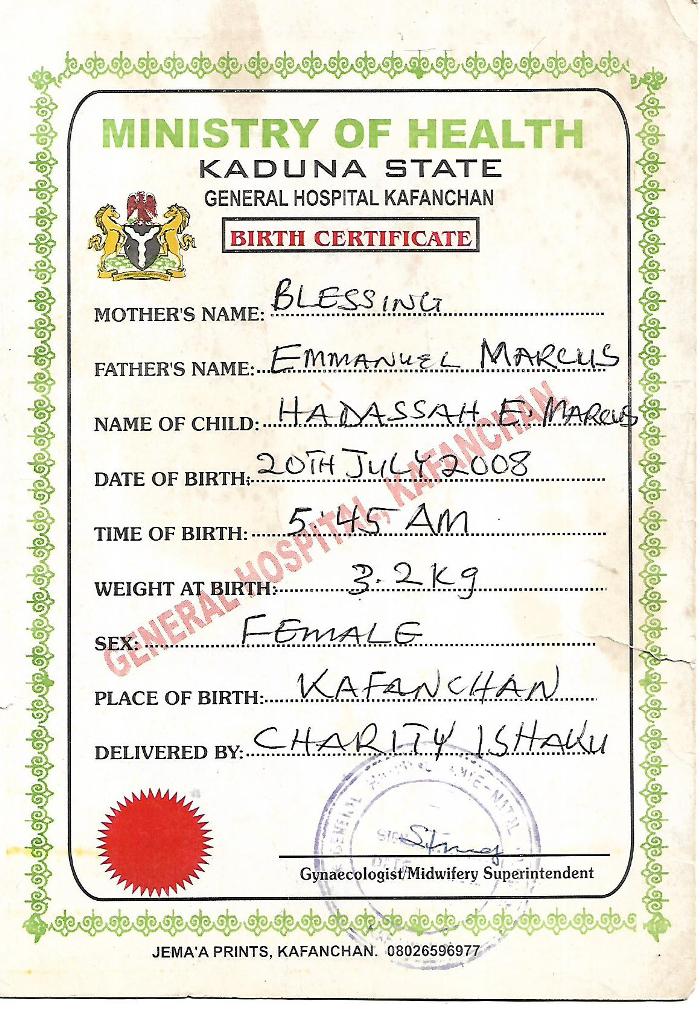 MINISTRY OF HEALTH
KADUNA STATE
GENERAL HOSPITAL KAFANCHAN
BIRTH CERTIFICATE
MOTHER'S NAME: BLESSING
FATHER'S NAME: EMMANUEL MARCUS
NAME OF CHILD: HADASSAH E. MARCUS
DATE OF BIRTH: 20TH JULY 2008
TIME OF BIRTH: 5:45 AM
WEIGHT AT BIRTH: 3.2kg
SEX: FEMALE
PLACE OF BIRTH: KAFANCHAN
DELIVERED BY: CHARITY ISHAKU
GENERAL HOSPITAL, KAFANCHAN.
GENERAL HOSPITAL ANTE-NATAL
SIGN
DATE
Gynaecologist/Midwifery Superintendent
JEMA'A PRINTS, KAFANCHAN. 08026596977